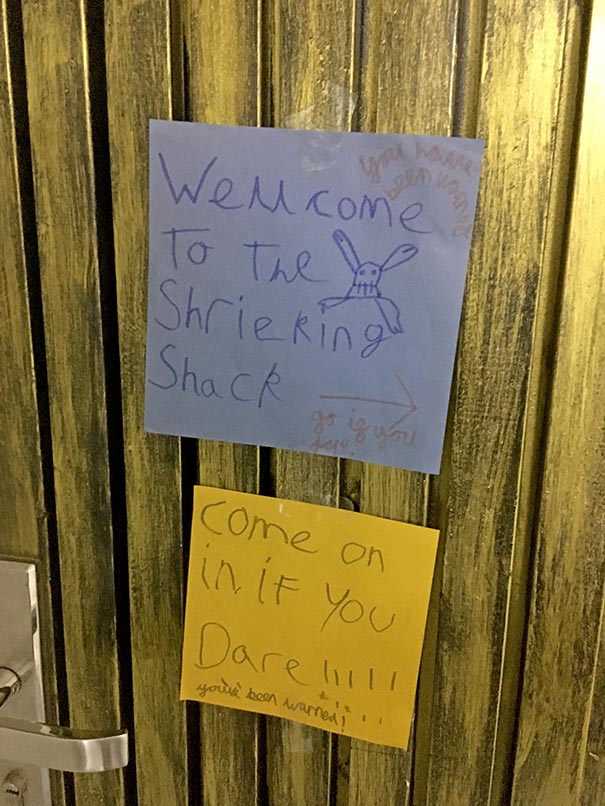 Wellcome
you have
been warned
To The
Shrieking
Shack
go if you
dare
come on
in if you
Dare !!!!!
you've been warned!